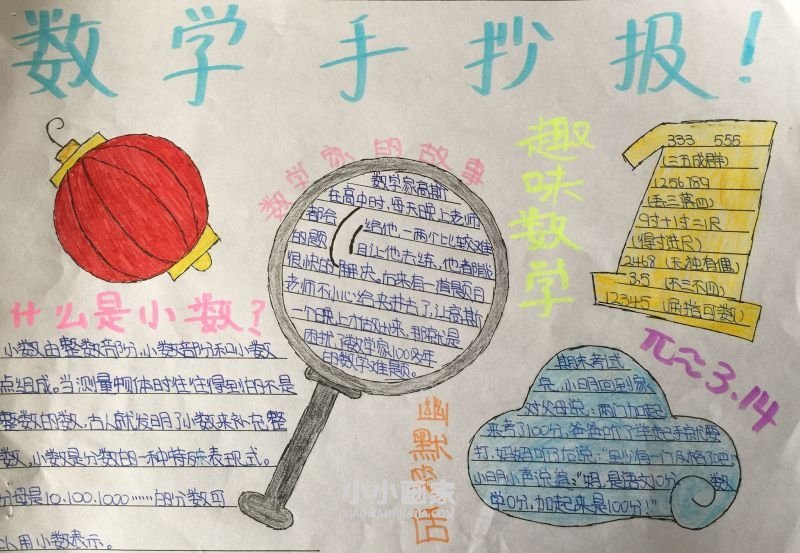 数学手抄报!
数学家的故事
数学家高斯
在高中时,每天晚上老师
都会给他一两个比较难
的题目让他去练,他都能
很快的解决,后来有一道题目
老师不小心给夹进去了,让高斯
一个晚上才做出来,那就是
困扰了数学家100多年
的数学难题。
趣味数学
333 555
(三五成群)
1256789
(丢三落四)
9寸+1寸=1尺
(得寸进尺)
2468(无独有偶)
3.5(不三不四)
12345(屈指可数)
π≈3.14
什么是小数?
小数由整数部份,小数部份和小数
点组成。当测量物体时往往得到的不是
整数的数,古人就发明了小数来补充整
数,小数是分数的一种特殊表现式。
分母是10.100.1000……的分数可
以用小数表示。
幽默数店
期末考试
完,小明回到家
对父母说:两门加起
来考了100分,爸爸听了举起手就要
打,妈妈听了却说:至少有一门及格了吧
小明小声说道:“妈,是语文10分 数
学0分,加起来是100分!”
小小画家
XIAOXIAOHUAJIA.COM